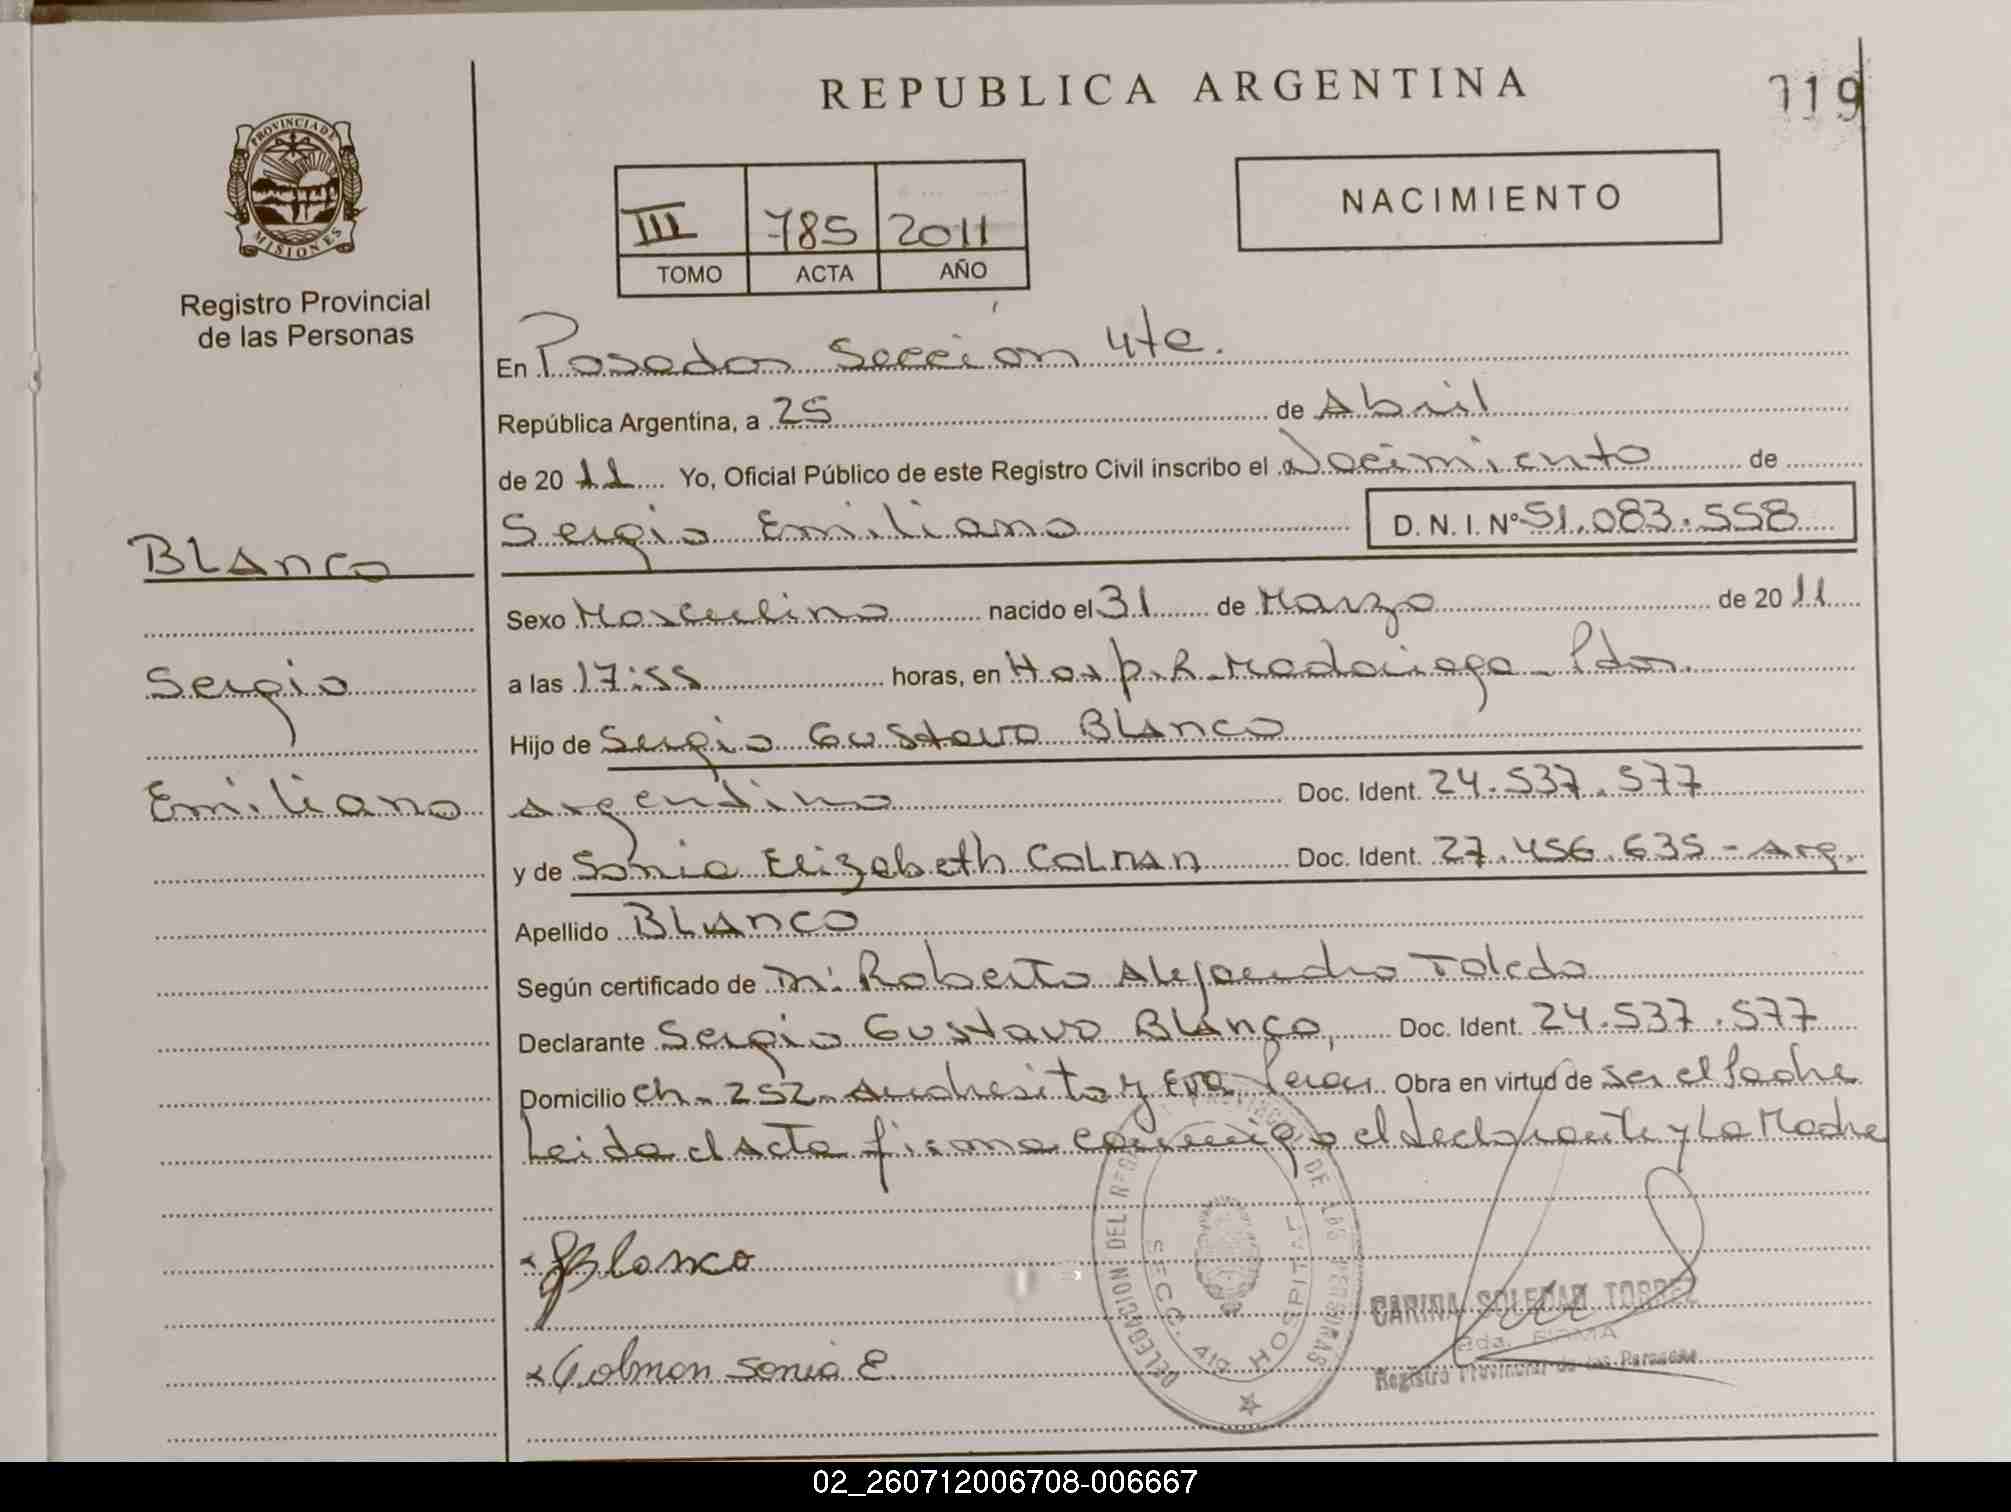 REPUBLICA ARGENTINA
119
PROVINCIA DE
MISIONES
Registro Provincial
de las Personas
III 785 2011
TOMO ACTA AÑO
NACIMIENTO
En Posadas Sección 4ta.
República Argentina, a 25 de Abril
de 20 11 Yo, Oficial Público de este Registro Civil inscribo el Nacimiento de
Sergio Emiliano D.N.I. N° 51.083.558
BLAnco
Sergio
Emiliano
Sexo Masculino nacido el 31 de Marzo de 20 11
a las 17:55 horas, en Hosp. R. Madariaga - Pdas.
Hijo de Sergio Gustavo BLAnco
Argentino Doc. Ident. 24.537.577
y de Sonia Elizabeth CoLMAN Doc. Ident. 27.456.635 - Arg.
Apellido BLAnco
Según certificado de Dr. Roberto Alejandro Toledo
Declarante Sergio Gustavo BLAnco, Doc. Ident. 24.537.577
Domicilio Ch. 252 - Andresito y Eva Peron Obra en virtud de ser el Padre
Leida el Acta firma conmigo el declarante y La Madre
Blanco
Colman Sonia E.
DELEGACION DEL REG. PROVINCIAL DE LAS PERSONAS
SECC. HOSPITAL
CARINA SOLEDAD TORRES
2da. FIRMA
Registro Provincial de las Personas
02_260712006708-006667